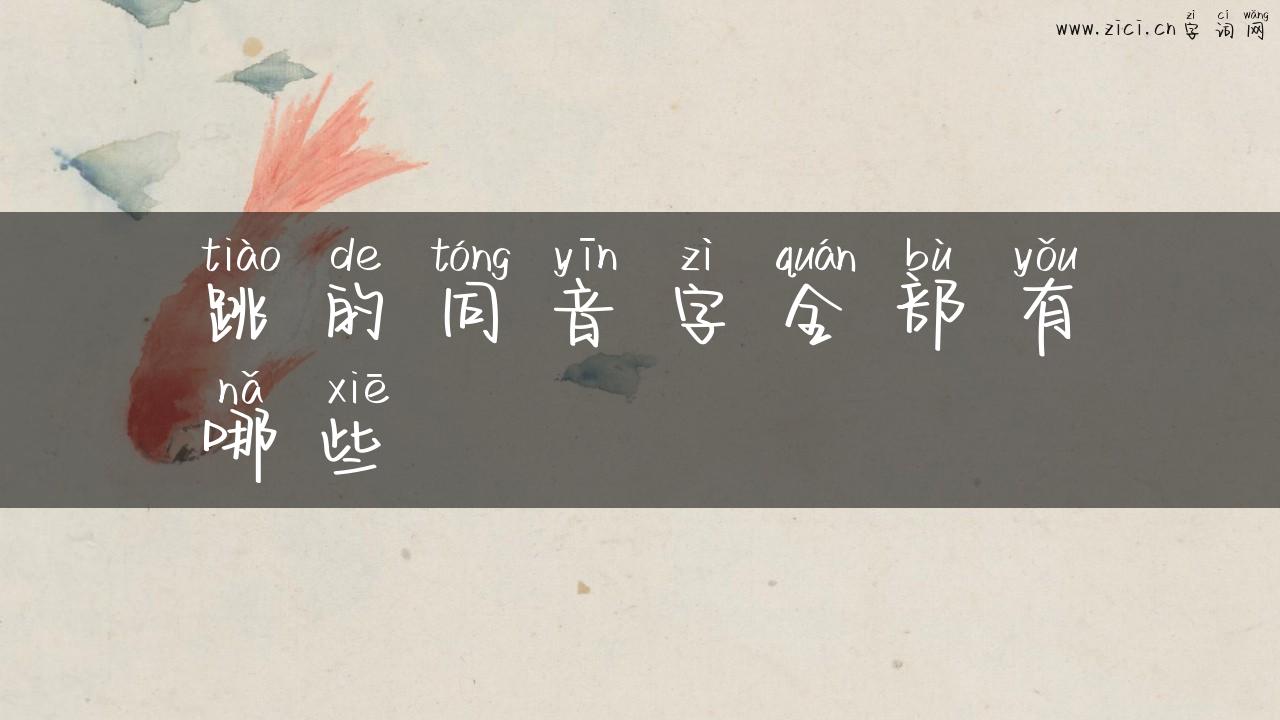 www.zici.cn 字词网
zì cí wǎng
tiào de tóng yīn zì quán bù yǒu
跳的同音字全部有
nǎ xiē
哪些